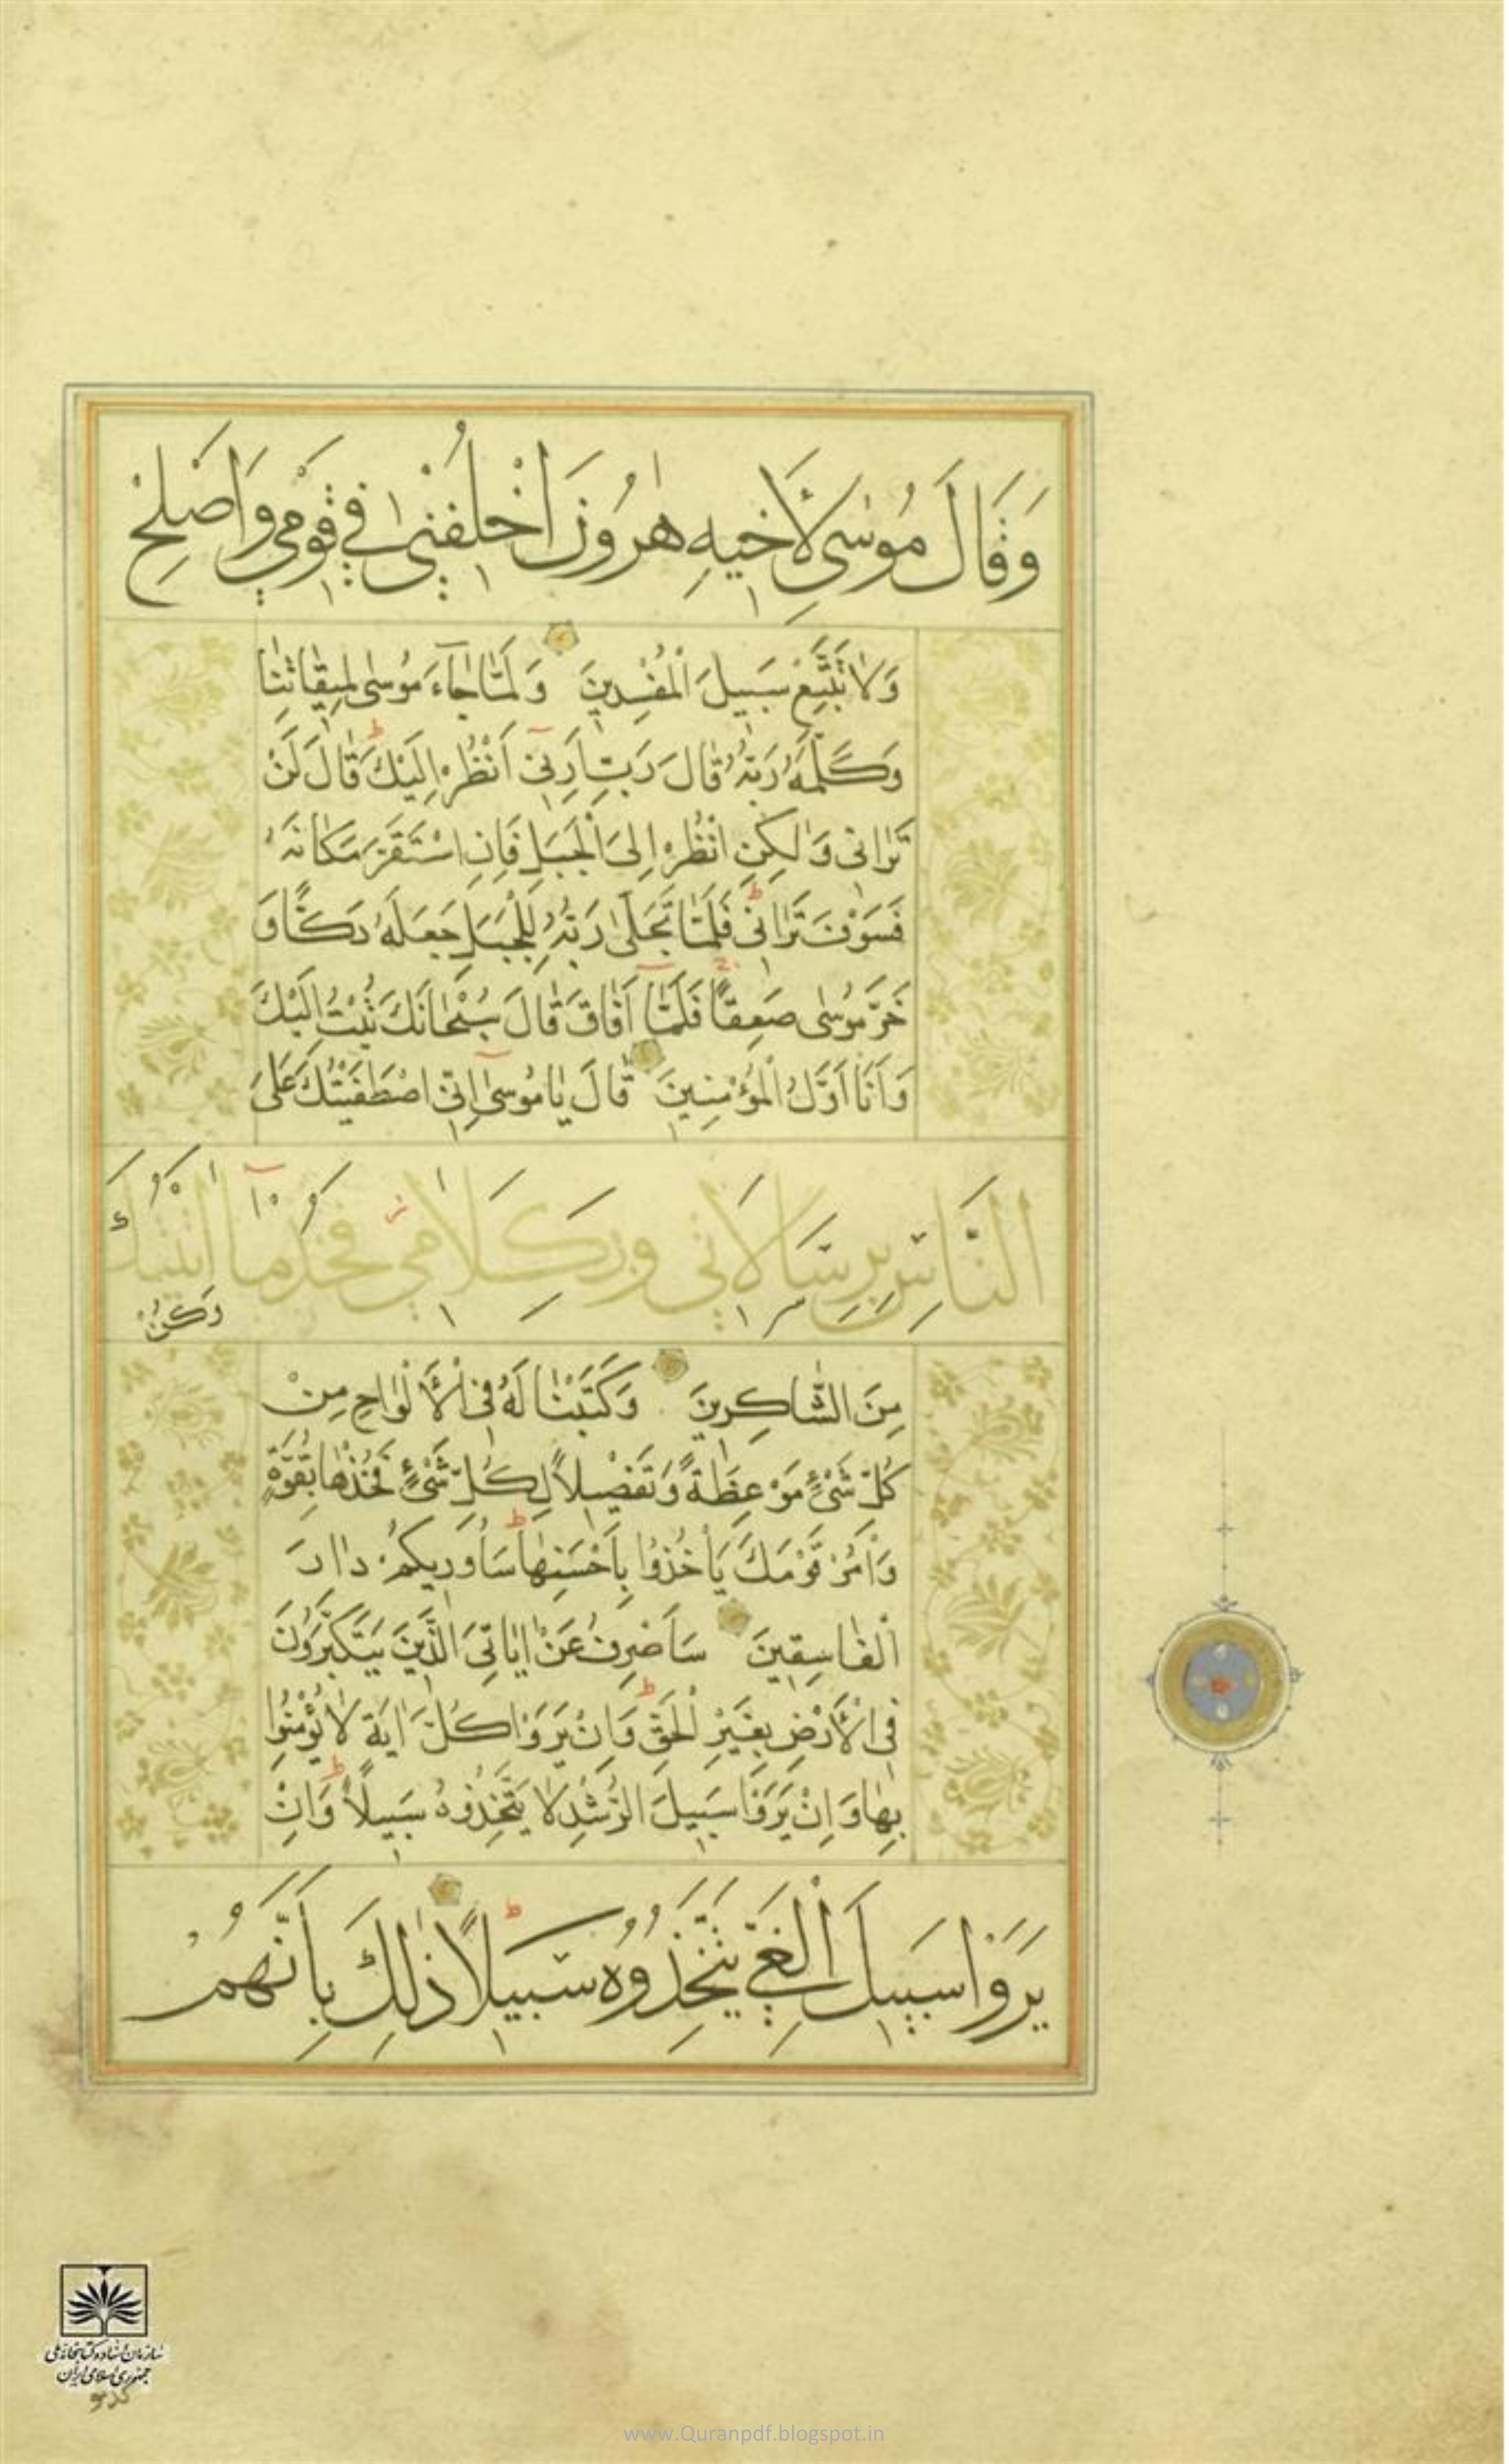 وَقَالَ مُوسٰى لِأَخيهِ هٰرُونَ اخْلُفْنى فى قَوْمى وَاَصْلِحْ
وَلاٰ تَتَّبِعْ سَبيلَ الْمُفْسِدينَ وَلَمّٰا جٰآءَ مُوسٰى لِميقٰاتِنٰا
وَكَلَّمَهُ رَبُّهُ قٰالَ رَبِّ اَرِنى اَنْظُرْ اِلَيْكَ قٰالَ لَنْ
تَرٰانى وَلٰكِنِ انْظُرْ اِلَى الْجَبَلِ فَاِنِ اسْتَقَرَّ مَكٰانَهُ
فَسَوْفَ تَرٰانى فَلَمّٰا تَجَلّٰى رَبُّهُ لِلْجَبَلِ جَعَلَهُ دَكًّا وَ
خَرَّ مُوسٰى صَعِقًا فَلَمّٰآ اَفٰاقَ قٰالَ سُبْحٰانَكَ تُبْتُ اِلَيْكَ
وَاَنَا اَوَّلُ الْمُؤْمِنينَ قٰالَ يٰا مُوسٰى اِنّى اصْطَفَيْتُكَ عَلَى
النّٰاسِ بِرِسٰالاٰتى وَبِكَلاٰمى فَخُذْ مٰآ اٰتَيْتُكَ
وَكُنْ
مِنَ الشّٰاكِرينَ وَكَتَبْنٰا لَهُ فِى الْأَلْوٰاحِ مِنْ
كُلِّ شَىْءٍ مَوْعِظَةً وَتَفْصيلاً لِكُلِّ شَىْءٍ فَخُذْهٰا بِقُوَّةٍ
وَأْمُرْ قَوْمَكَ يَأْخُذُوا بِاَحْسَنِهٰا سَاُوريكُمْ دٰارَ
الْفٰاسِقينَ سَاَصْرِفُ عَنْ اٰيٰاتِىَ الَّذينَ يَتَكَبَّرُونَ
فِى الْأَرْضِ بِغَيْرِ الْحَقِّ وَاِنْ يَرَوْا كُلَّ اٰيَةٍ لاٰ يُؤْمِنُوا
بِهٰا وَاِنْ يَرَوْا سَبيلَ الرُّشْدِ لاٰ يَتَّخِذُوهُ سَبيلاً وَاِنْ
يَرَوْا سَبيلَ الْغَىِّ يَتَّخِذُوهُ سَبيلاً ذٰلِكَ بِاَنَّهُمْ
سازمان اسناد و کتابخانه ملی
جمهوری اسلامی ایران
www.Quranpdf.blogspot.in